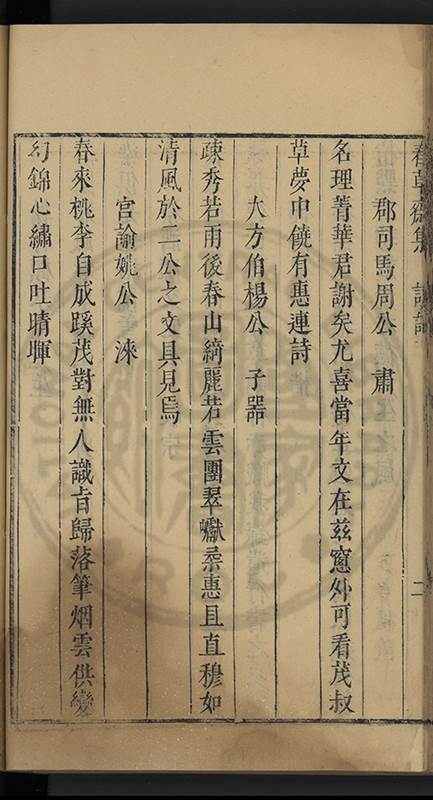 春草齋集
二
郡司馬周公 肅
名理菁華君謝矣尤喜當年文在茲窓外可看茂叔
草夢中饒有惠連詩
大方伯楊公 子器
疎秀若雨後春山綺麗若雲團翠巘柔惠且直穆如
清風於二公之文具見焉
宮諭姚公 淶
春來桃李自成蹊茂對無人識㫖歸落筆烟雲供變
幻錦心繡口吐晴暉